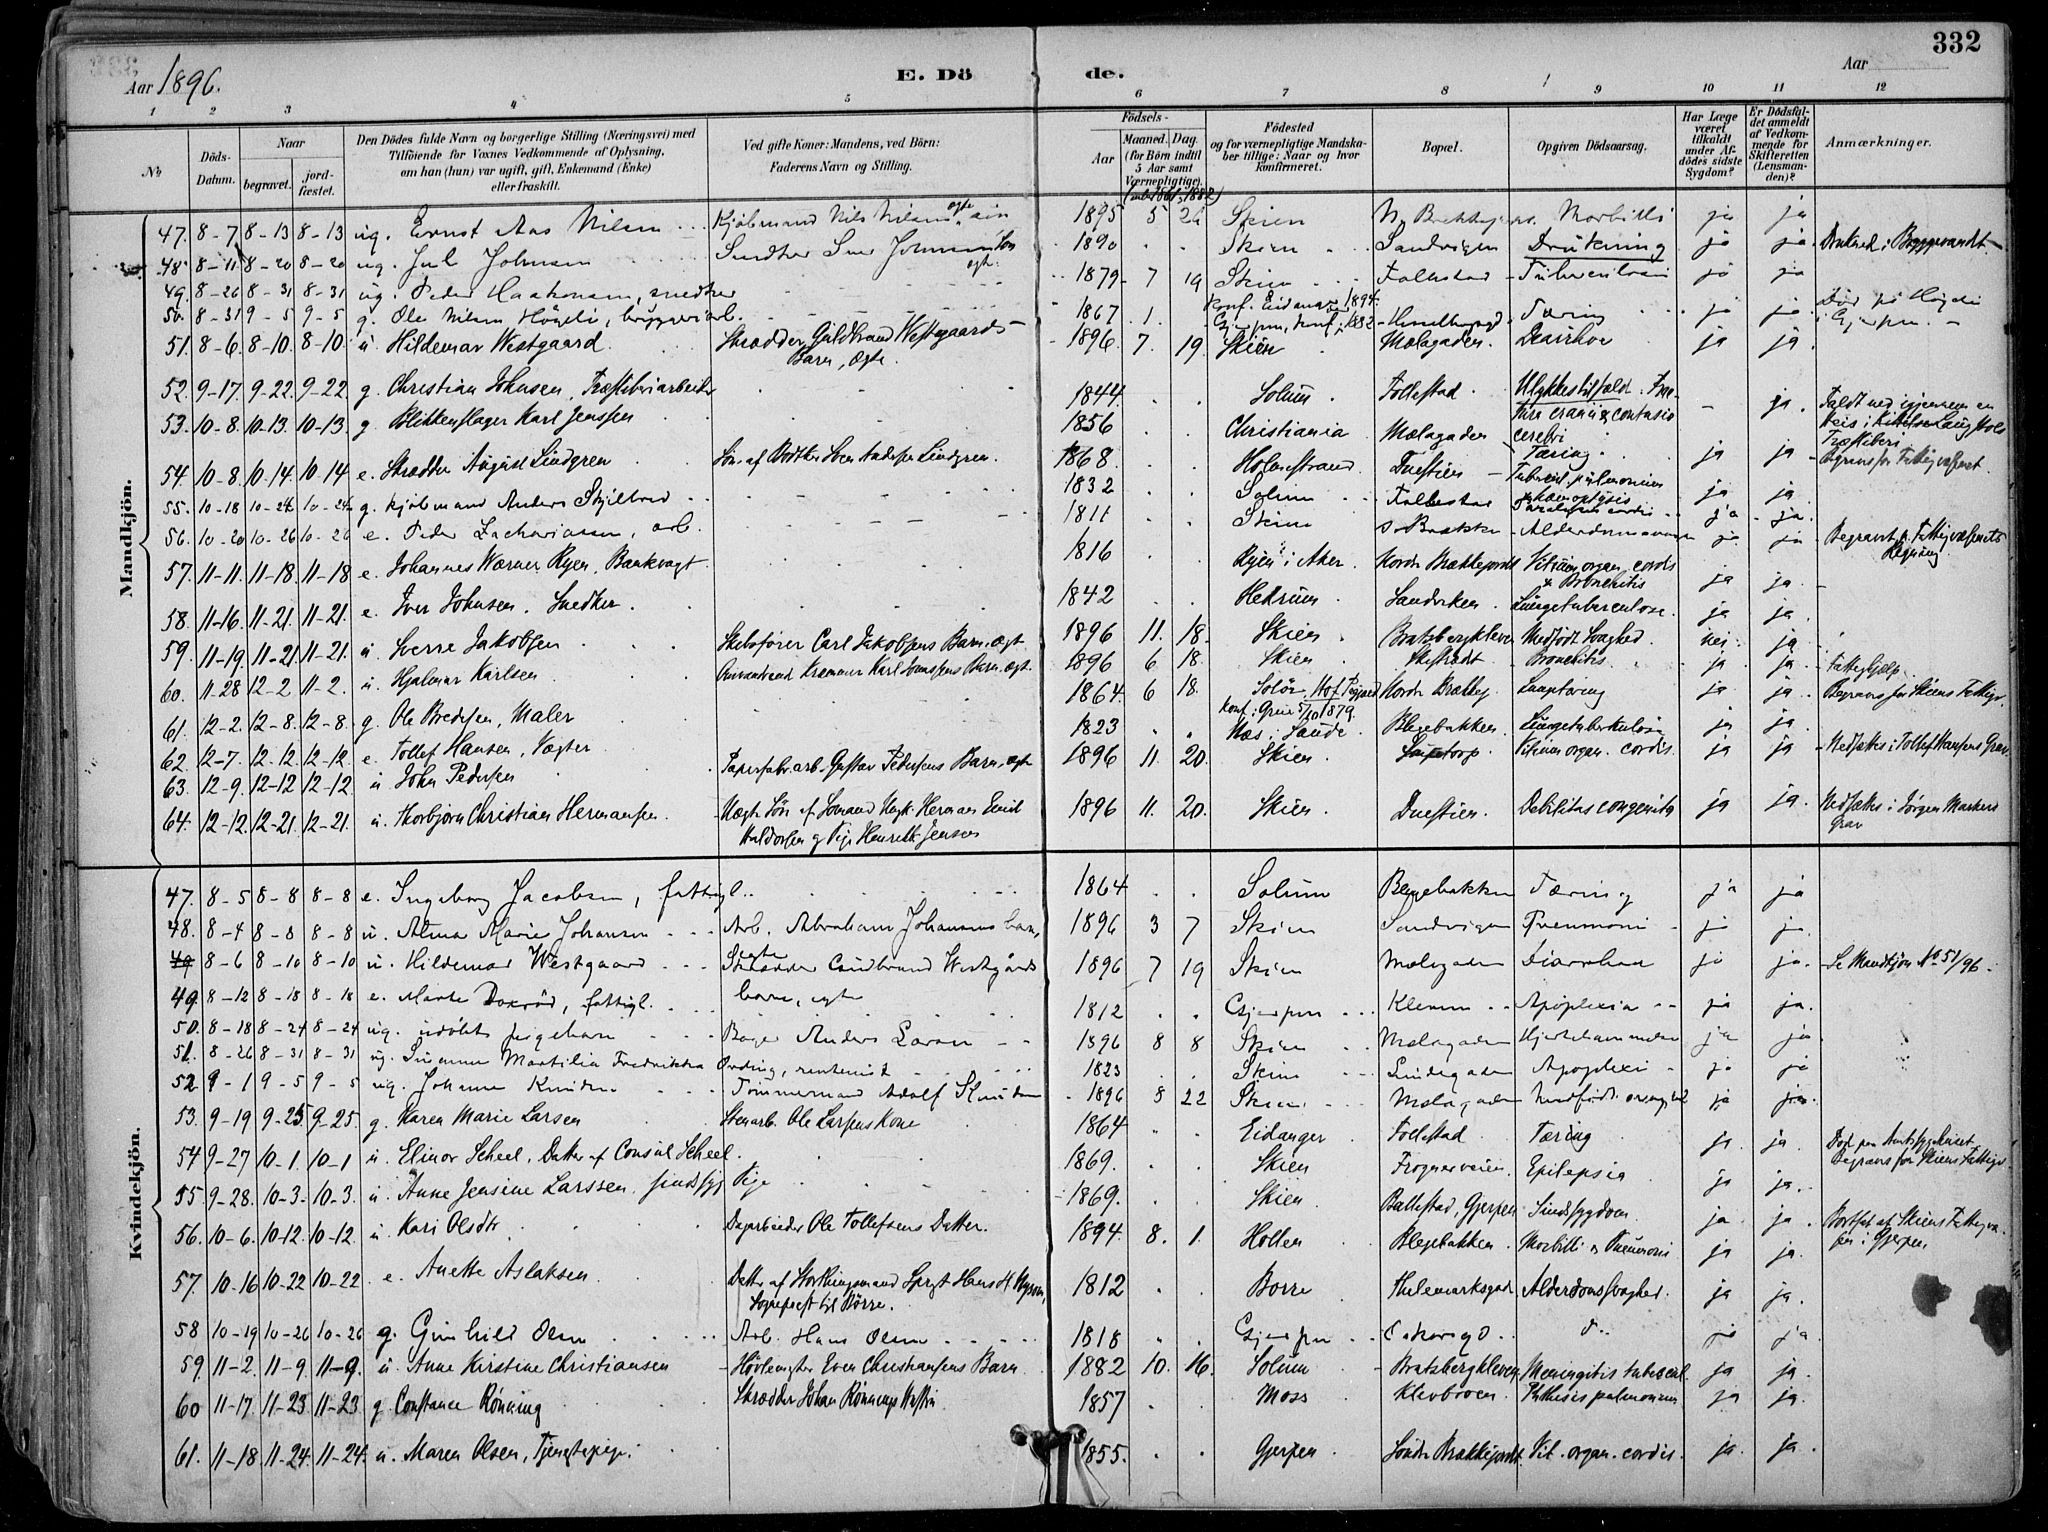 332
Aar 1896.
E. Dö de.
Aar
1 2 3 4 5 6 7 8 9 10 11 12
No
Döds-Datum.
Naar begravet. jordfæstet.
Den Dödes fulde Navn og borgerlige Stilling (Næringsvei) med Tilföiende for Voxnes Vedkommende af Oplysning, om han (hun) var ugift, gift, Enkemand (Enke) eller fraskilt.
Ved gifte Koner: Mandens, ved Börn: Faderens Navn og Stilling.
Födsels-
Aar Maaned. Dag. (for Börn indtil 5 Aar samt Værnepligtige).
Födested og for værnepligtige Mandskaber tillige: Naar og hvor konfirmeret.
Bopæl.
Opgiven Dödsaarsag.
Har Læge været tilkaldt under Afdödes sidste Sygdom?
Er Dödsfaldet anmeldt af Vedkommende for Skifteretten (Lensmanden)?
Anmærkninger.
Mandkjön.
47. 8-7 8-13 8-13 ug. Ernst Aas Nilsen Kjøbmand Nils Nilsens ægte sön 1895 5 26 Skien Morbilli ja ja
48 8-11 8-20 8-20 ug. Jul Johnsen Snedker Johnsens Sön ægte. 1890 Skien Sandvigen Drukning ja ja Druknet i Bryggevandet
49. 8-26 8-31 8-31 ug. Peder Haakonsen, snedker 1879 7 19 Skien Follestad Tuberculosis ja ja
konf. Eidanger 1894.
50. 8-31 9-5 9-5 g. Ole Nilsen Högeli, bryggeriarb. 1867 1. Gjerpen, konf. 1882 Tæring ja ja Död på Högeli i Gjerpen.
51. 8-6. 8-10. 8-10. u Hildemar Westgaard. Skrædder Guldbrand Westgaards Barn, ægte 1896. 7. 19. Skien Mælagaden Diarrhoe ja ja.
52. 9-17. 9-22. 9-22. g. Christian Johnsen, Træsliberiarbeider 1844. Solum. Follestad. Ulykkestilfæld. Fractura cranii & contusio cerebri - ja. Faldt ned igjennem en
53. 10-8. 10-13. 10-13. g Blikkenslager Karl Jenssen 1856 Christiania Mælagaden Tæring. ja ja Træsliberi
54. 10-8. 10-14. 10-14. e. Skrædder August Lindgren Søn af Bødker Sven Andersen Lindgren. 1868. Holmestrand. Duestien Tubercul. pulmonum & hæmoptysis ja ja Begravet for Fattigvæsenet.
55. 10-18 10-24 10-24. g. Kjøbmand Anders Skilbred 1832 Solum Follestad Paralysis cordis ja ja.
56. 10-20 10-26 10-26 e. Peder Zachariassen, arb. 1811 Skien S. Brække Alderdom ja ja Begravet p. Fattigvæsenets Regning
57. 11-11. 11-18 11-18 e. Johannes Warner Ryen, Bankvagt 1816 Ryen i Aker Nordr. Brækkejordet Vitium organ. cordis & Bronchitis ja ja.
58. 11-16. 11-21. 11-21. e. Iver Johnsen. Snedker. 1842 Hedrum. Sandviken. Lungetuberculose. ja ja.
59. 11-19. 11-21 11-21. u Sverre Jakobsen Skibsfører Carl Jakobsens Barn, ægt 1896 11. 18. Skien Bratsbergkleven Medfødt Svaghed nei. ja
60. 11-28 12-2. 11-2. u. Hjalmar Karlsen Barn. ægt 1896 6 18. Skien Bronchitis. ja ja. Fattighjælp.
61. 12-2. 12-8. 12-8. g. Ole Bredesen, Maler 1864. 6 18. Solør, Hof konf. Grue 5/10 1879. Nordr. Brækkej. Lungetæring ja ja. Begravet for Skiens Fattigv.
62. 12-7. 12-12. 12-12. e. Tollef Hansen, Vægter 1823 Næs i Saude Blegebakken Lungetuberkulose ja ja
63. 12-9. 12-12 12-12. u John Pedersen Papirfabr.arb. Gustav Pedersens Barn, ægt 1896 11. 20. Skien Vitium organ. cordis. ja ja Nedsættes i Tollef Hansens Grav
64. 12-12. 12-21. 12-21. u. Thorbjørn Christian Hermansen. Uægte Søn af Sømand Ungk. Herman Emil Haldorsen og Pige Henriette Jensen 1896 11. 20. Skien Duestien. Debilitas congenita ja ja. Nedsættes i Jørgen Markens Grav
Kvindekjön.
47. 8-5 8-8 8-8 e. Ingeborg Jacobsen, fattigl. 1864 Solum Blegebakken Tæring ja ja
48. 8-4 8-8 8-8 u. Alma Marie Johansen Arb. Abraham Johansens barn, ægte 1896 3 7 Skien Sandvigen Pneumoni ja ja.
49 8-6 8-10 8-10 u. Hildemar Westgaard Skrædder Gudbrand Westgårds barn, ægte 1896 7 19 Skien Mælagaden Diarrhoea ja ja. Se Mandkjøn No 51/96.
49. 8-12 8-18 8-18 e. Marte Doxrød, fattigl. 1812 Gjerpen Klevene Apoplexia ja ja.
50. 8-18 8-24 8-24 ug. udöbt pigebarn Bager Anders Larsen 1896 8 8 Skien Mælagaden ja ja
51. 8-26 8-31 8-31 ug. Susanne Martilia Fredrikke Ording, rentenist 1823 Skien Lindegaden Apoplexi ja ja
52 9-1 9-5 9-5 ug. Johanne Knudsen Tömmermand Adolf Knudsen 1896 8 22 Skien Mælagaden ja ja
53. 9-19 9-25 9-25. g Karen Marie Larsen Stenarb. Ole Larsens Kone 1864 Eidanger Follestad Tæring ja ja
54 9-27 10-1. 10-1 u. Elinor Scheel. Datter af Consul Scheel. 1869. Skien Frognerveien. Epilepsia ja ja. Død paa Amtssygehuset. Begravet for Skiens Fattigv
55 9-28. 10-3. 10-3. u. Anne Jensine Larssen. sindssyg Pige 1869. Skien Ballestad, Gjerpen Sindssygdom ja ja. Bortsat af Skiens Fattigvæsen i Gjerpen.
56. 10-6. 10-12. 10-12. u Kari Olsdtr. Dagarbeider Ole Tollefsens Datter. 1894. 8. 1. Hollen Blegebakken. Morbilli & Pneumoni ja ja.
57. 10-16 10-22 10-22 e. Anette Aslaksen. Datter af Storthingsmand Sogneprest til Borre. 1812 Borre Thelemarksgad. Alderdomssvaghed. ja ja.
58 10-19 10-26 10-26 g. Gunhild Olsen Arb. Hans Olsen 1818 Gjerpen do. ja ja
59. 11-2. 11-9. 11-9. u. Anne Kirstine Christiansen Høvlemester Even Christiansens Barn 1882 10. 16. Solum Bratsbergkleven. Meningitis tubercul. ja ja.
60 11-17. 11-23 11-23 g Constance Rønning Skrædder Johan Rønnings Hustru 1857 Moss Klovbroen. Phthisis pulmonum ja ja.
61. 11-18 11-24. 11-24. u. Maren Olsen, Tjenstepige. 1855. Gjerpen Søndr. Brækkejordet. Vit. organ. cordis. ja. ja